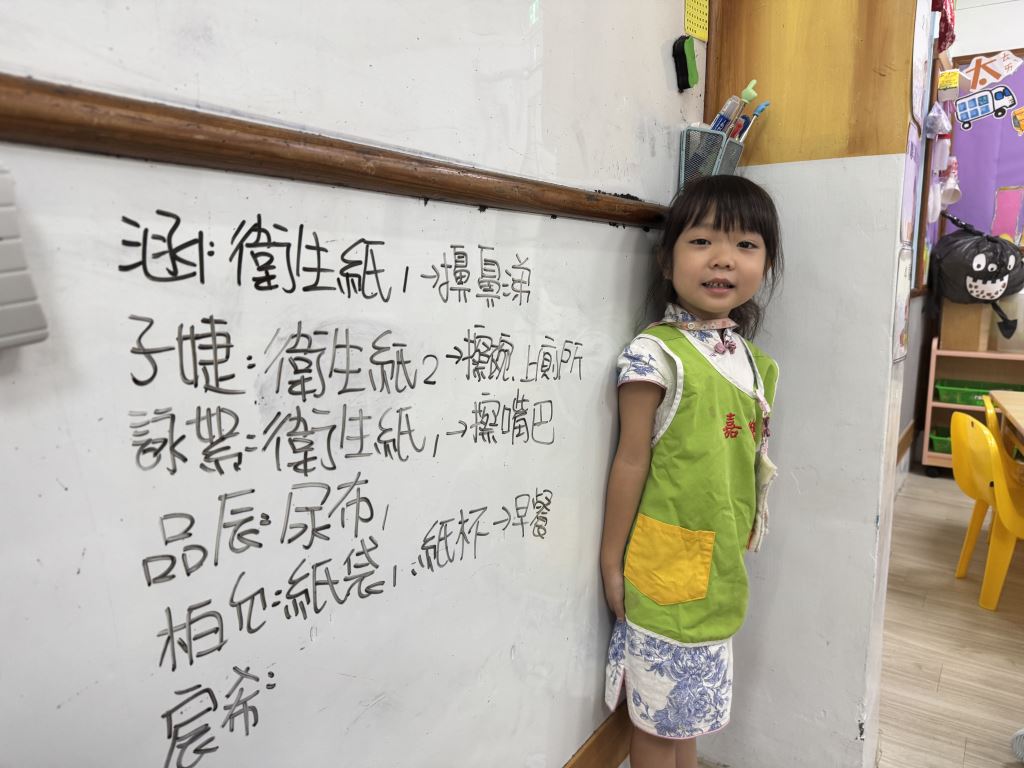 涵:衛生紙1→擤鼻涕
子婕:衛生紙2→擦碗、上廁所
詠絜:衛生紙1→擦嘴巴
品宸:尿布1
柏允:紙袋1、紙杯→早餐
宸希:
嘉
太